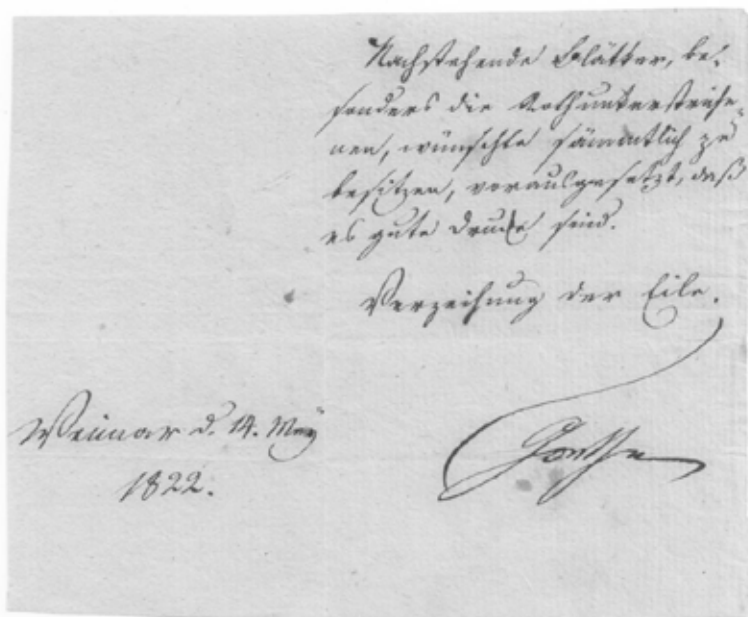 Nachstehende Blätter, be-
sonders die Rothunterstriche-
nen, wünschte sämmtlich zu
besitzen, vorausgesetzt, daß
es gute Drucke sind.
Verzeihung der Eile.
Weimar d. 14. May
1822.
Goethe